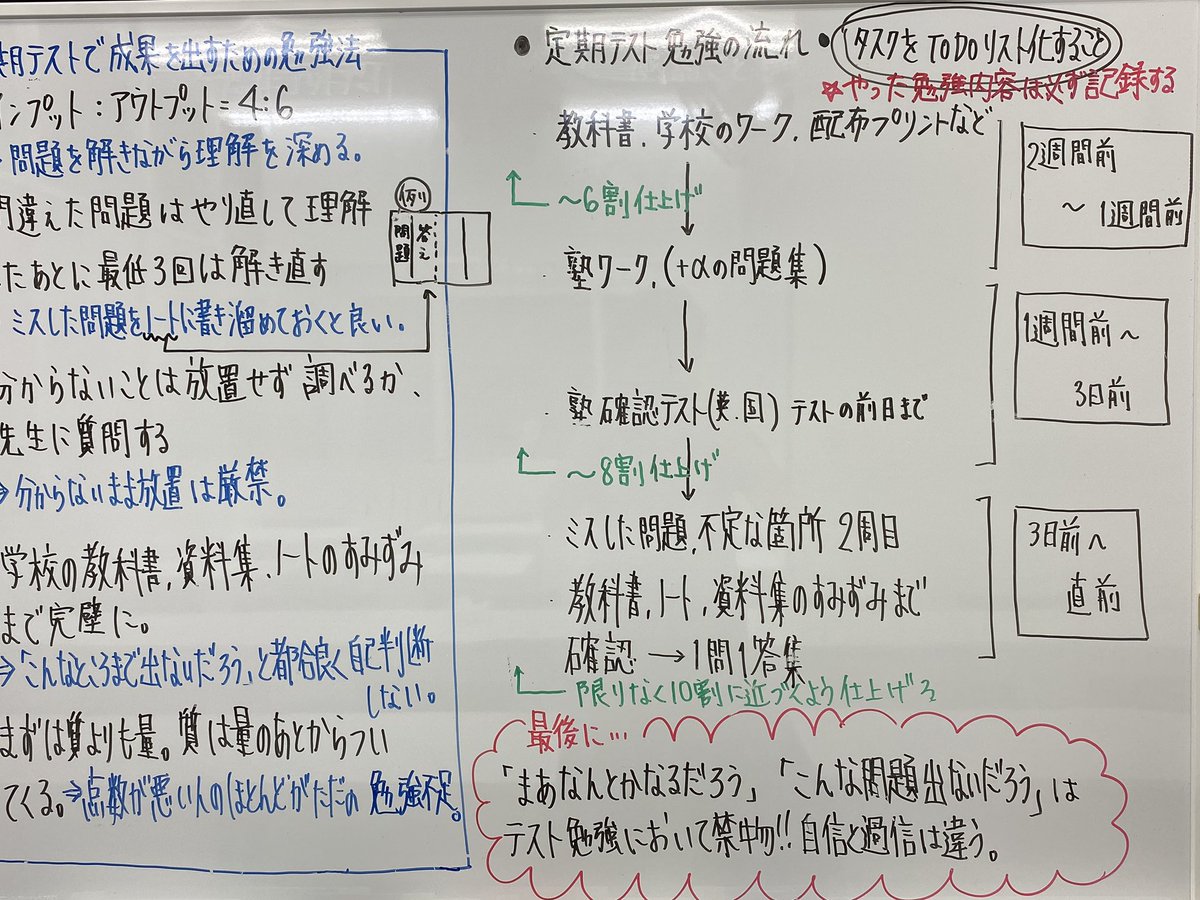 期テストで成果を出すための勉強法
インプット：アウトプット＝4:6
問題を解きながら理解を深める。
間違えた問題はやり直して理解
したあとに最低3回は解き直す
ミスした問題をノートに書き溜めておくと良い。
例
問題
答え
分からないことは放置せず調べるか、
先生に質問する
⇒分からないまま放置は厳禁。
学校の教科書、資料集、ノートのすみずみ
まで完璧に。
⇒「こんなところまで出ないだろう」と都合良く自己判断
しない。
まずは質よりも量。質は量のあとからつい
てくる。⇒点数が悪い人のほとんどがただの勉強不足。
●定期テスト勉強の流れ
●タスクをTODOリスト化すること
☆やった勉強内容は必ず記録する
教科書、学校のワーク、配布プリントなど
〜6割仕上げ
・塾ワーク、(+αの問題集)
・塾確認テスト(英.国) テストの前日まで
〜8割仕上げ
・ミスした問題、不定な箇所 2周目
・教科書、ノート、資料集のすみずみまで
確認→1問1答集
限りなく10割に近づくよう仕上げる
2週間前
〜1週間前
1週間前〜
3日前
3日前〜
直前
最後に…
「まあなんとかなるだろう」「こんな問題出ないだろう」は
テスト勉強において禁物!!自信と過信は違う。